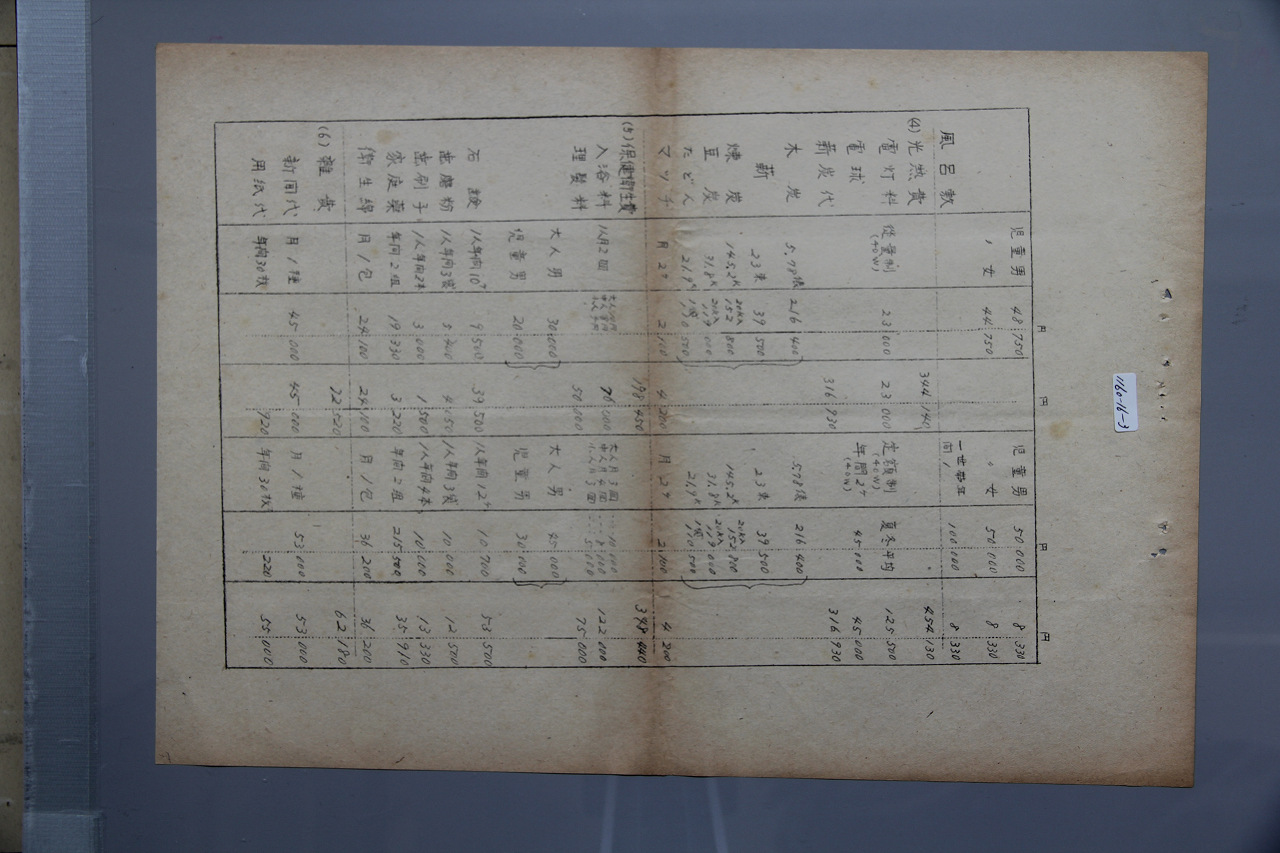 1160-16-3
円 円 円 円
児童男 48.750 児童男 50.000 8.330
〃 女 44.750 〃 女 50.000 8.330
風呂敷 一世帯年間1 100.000 8.330
(4) 光熱費 344.140 454.130
電灯料 従量制(40W) 23.000 23.000 定額制(40W) 夏冬平均 125.500
電球 年間2ケ(40W) 45.000 45.000
薪炭代 316.930 316.930
木炭 5.78俵 216.400 5.78俵 216.400
薪 23束 39.500 23束 39.500
煉炭 145.2K 20KA 152.800 145.2K 20KA 152.800
豆炭 31.8K 20KA 119.000 31.8K 20KA 119.000
たどん 21.9K 1俵 190.500 21.9K 1俵 170.500
マッチ 月2ケ 2.100 4.200 月2ケ 2.100 4.200
(5) 保健衛生費 198.450 398.440
入浴料 1人月2回 76.000 大人月3回 中人月4回 小人月3回 122.000
理髪料 50.000 75.000
大人男 30.000 大人男 45.000
児童男 20.000 児童男 30.000
石鹸 1人年間10ケ 9.500 39.500 1人年間12ケ 10.700 53.500
歯磨粉 1人年間3袋 1人年間3袋 10.000 12.500
歯刷子 1人年間2本 3.000 1.500 1人年間4本 10.000 13.330
家庭薬 年間2組 19.330 3.220 年間2組 215.500 35.910
衛生綿 月1包 24.100 24.100 月1包 36.200 36.200
(6) 雑費 62.180
新聞代 月1種 45.000 45.000 月1種 53.000 53.000
用紙代 年間30枚 920 年間36枚 220 55.000